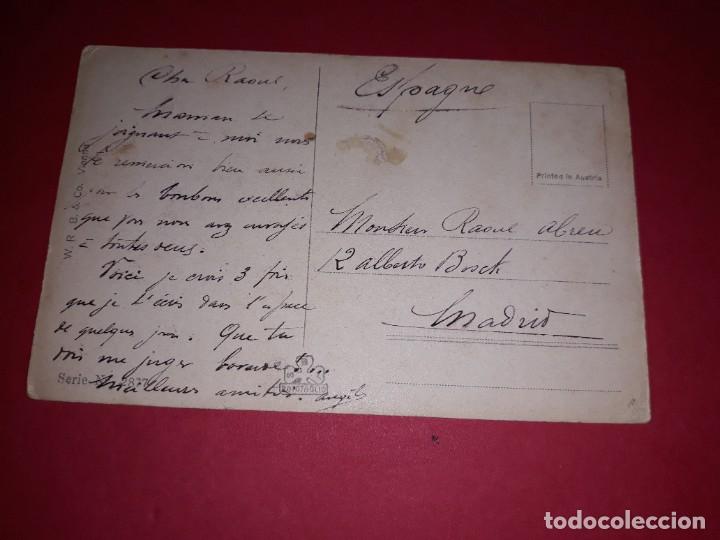 Cher Raoul,
Maman se
joignant à moi nous
te remercions bien aussi
les bonbons excellents
que vous nous avez envoyés
à toutes deux.
Voici je crois 3 fois
que je t'écris dans l'espace
de quelques jours. Que tu
dois me juger bavarde !..
Meilleurs amitiés.
Espagne
Printed in Austria
Monsieur Raoul Abreu
12 Alberto Bosch
Madrid
W. R. B. & Co. Vienne
Serie N
ROTOTGOLIO
todocoleccion.net